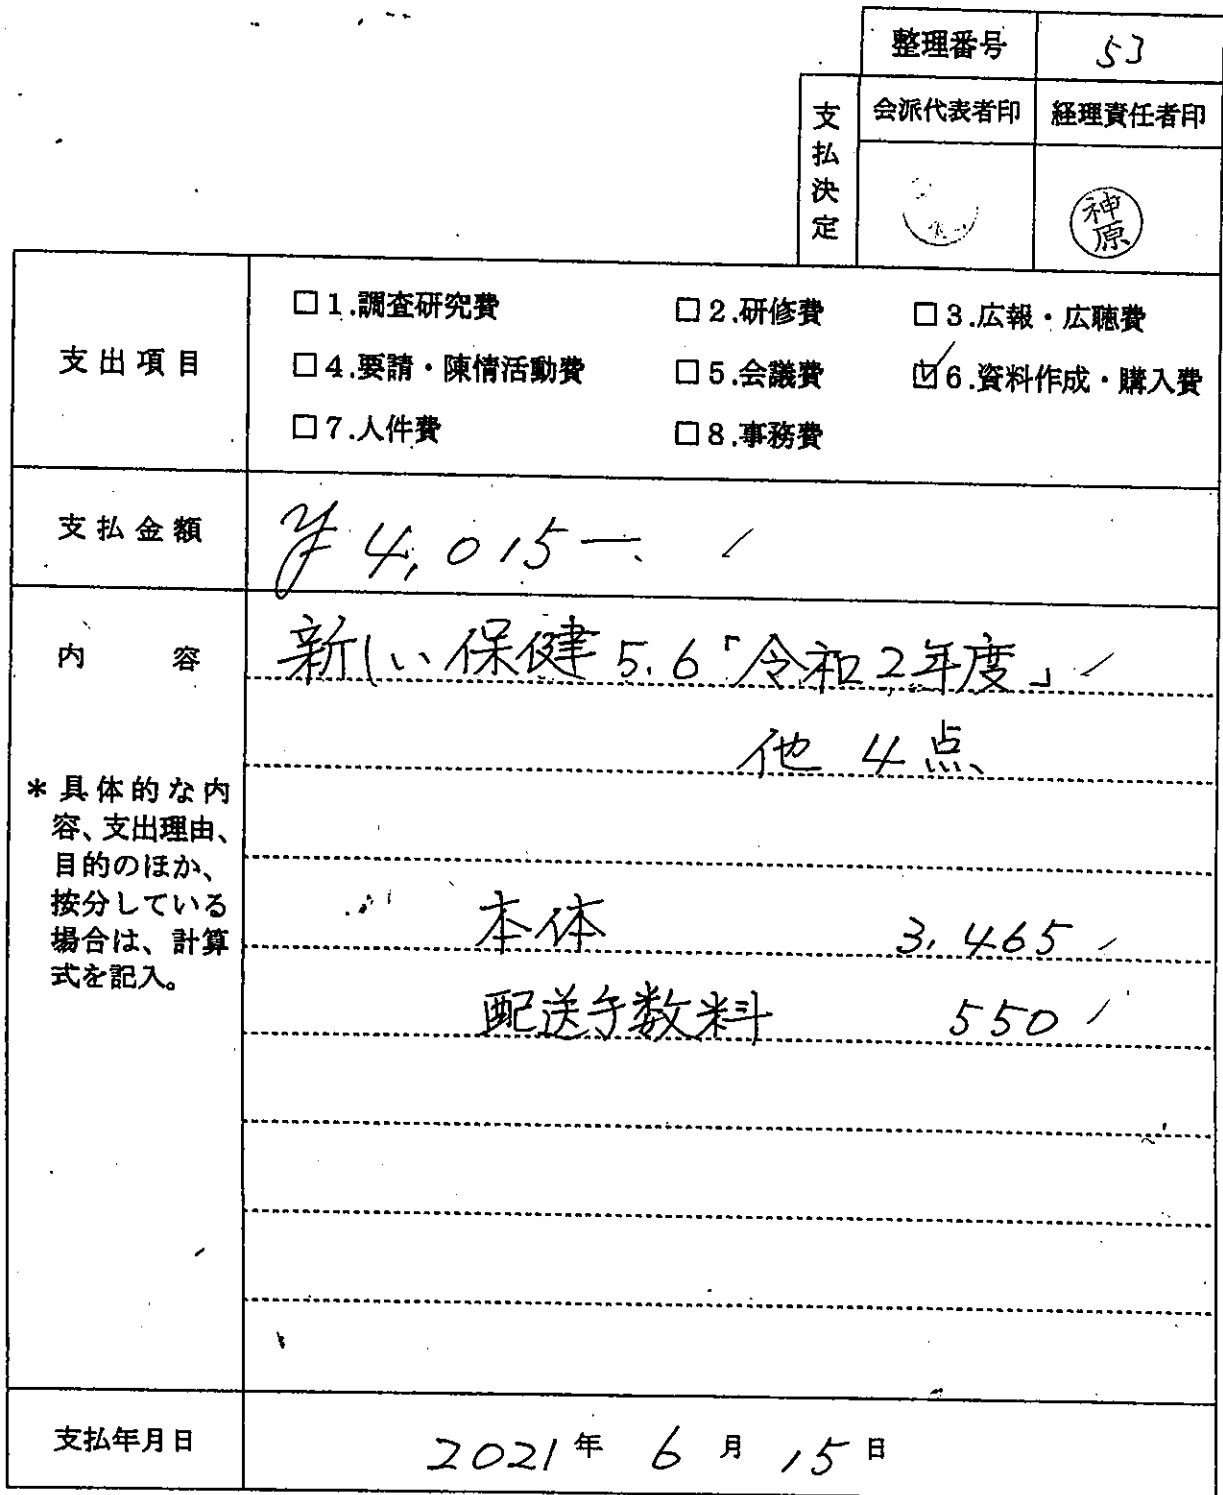 整理番号 53
支払決定
会派代表者印 経理責任者印
神原
支出項目
□1.調査研究費 □2.研修費 □3.広報・広聴費
□4.要請・陳情活動費 □5.会議費 ☑6.資料作成・購入費
□7.人件費 □8.事務費
支払金額 ¥4,015―
内容 新しい保健5.6「令和2年度」
他 4点
*具体的な内
容、支出理由、
目的のほか、
按分している
場合は、計算
式を記入。
本体 3,465
配送手数料 550
支払年月日 2021年 6月 15日